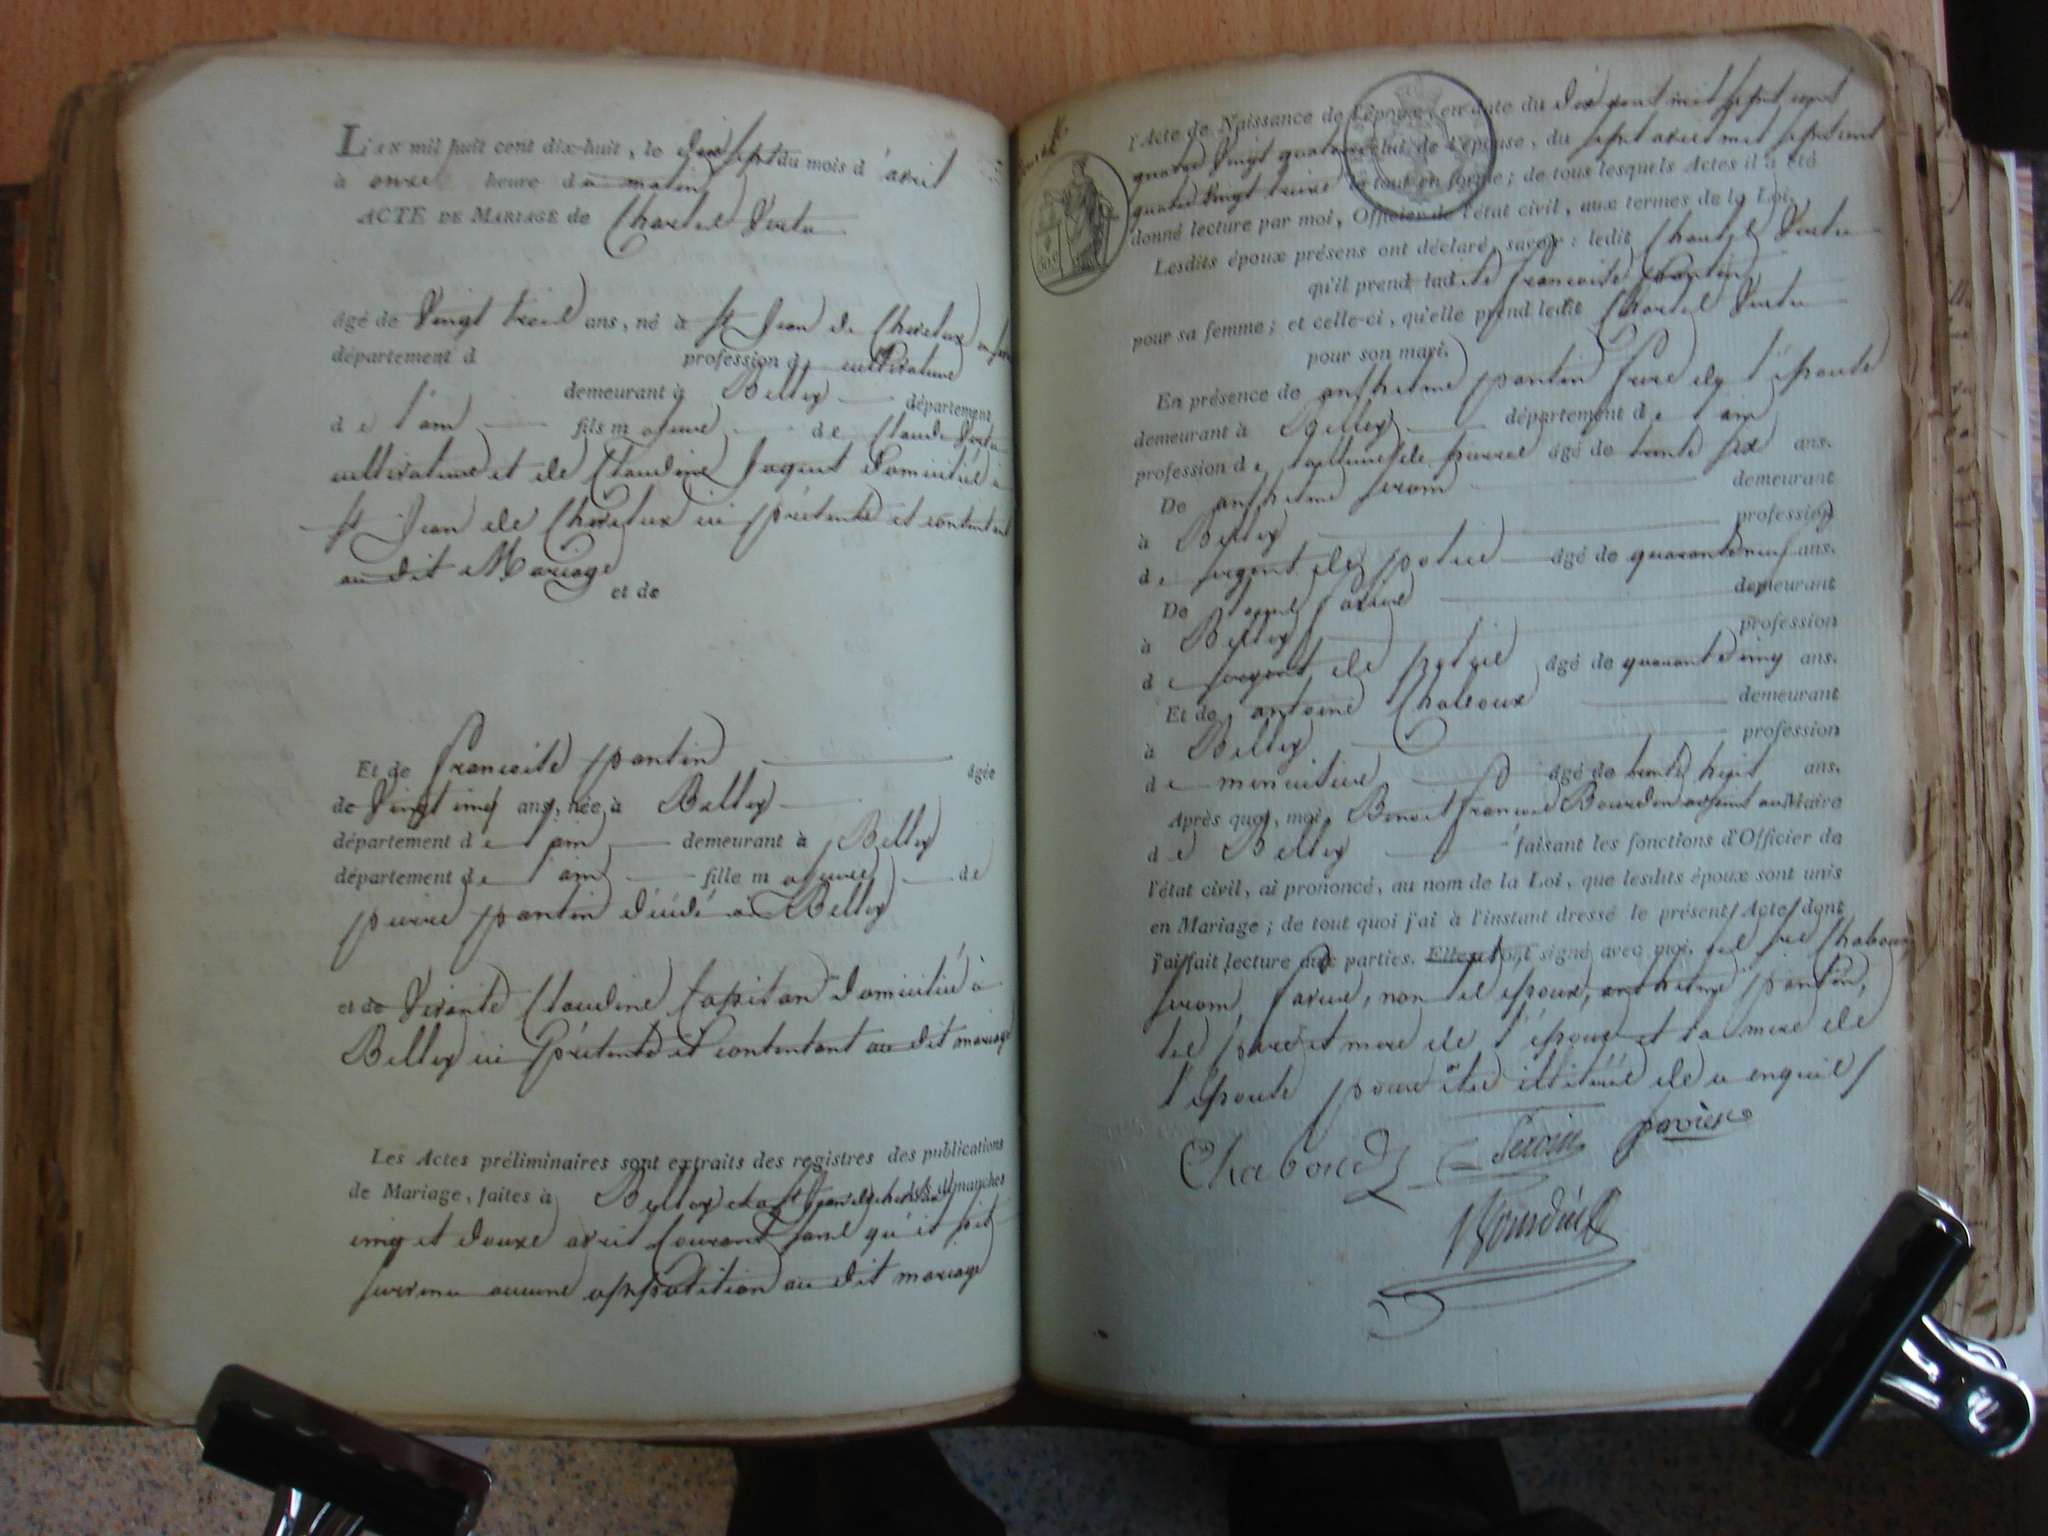 L'AN mil huit cent dix-huit, le dix sept du mois d'avril
à onze heure du matin
ACTE DE MARIAGE de Charles Vertu
âgé de Vingt trois ans, né à St Jean de Chevelux
département d profession de cultivateur
demeurant à Belley département
de l'ain fils majeur de Claude Vertu
cultivateur et de Claudine domicilié à
St Jean de Chevelux ici présents et contentant
au dit Mariage
et de
Et de francoise pantin âgée
de Vingt cinq ans, née à Belley
département de l'ain demeurant à Belley
département de l'ain fille majeure de
pierre pantin décédé à Belley
et de Vivante Claudine Capitan domiciliée à
Belley ici présente et contentant au dit mariage
Les Actes préliminaires sont extraits des registres des publications
de Mariage, faites à Belley et à St Jean de chevelux les dimanches
cinq et douze avril Courant sans qu'il soit
survenu aucune opposition au dit mariage
l'Acte de Naissance de l'époux, en date du dix août mil sept cent
quatre Vingt quatorze celui de l'épouse, du sept avril mil sept cent
quatre Vingt treize le tout en forme; de tous lesquels Actes il a été
donné lecture par moi, Officier de l'état civil, aux termes de la Loi.
Lesdits époux présens ont déclaré, savoir: ledit Charles Vertu
qu'il prend ladite francoise pantin
pour sa femme; et celle-ci, qu'elle prend ledit Charles Vertu
pour son mari.
En présence de anthelme pantin frere de l'épouse
demeurant à Belley département de l'ain
profession de tailleur de pierres âgé de trente six ans.
De anthelme serom demeurant
à Belley profession
de sergent de police âgé de quarante neuf ans.
De demeurant
à Belley profession
de sergent de police âgé de quarante cinq ans.
Et de antoine Chaboux demeurant
à Belley profession
de menuisier âgé de trente huit ans.
Après quoi, moi, Benoit francois Bourdin adjoint au Maire
de Belley faisant les fonctions d'Officier de
l'état civil, ai prononcé, au nom de la Loi, que lesdits époux sont unis
en Mariage; de tout quoi j'ai à l'instant dressé le présent Acte dont
j'ai fait lecture aux parties. Elles ont signé avec moi.
serom, non les époux, anthelme pantin,
les père et mere de l'époux et la mere de
l'épouse pour être illitérés de ce enquis/
Bourdin